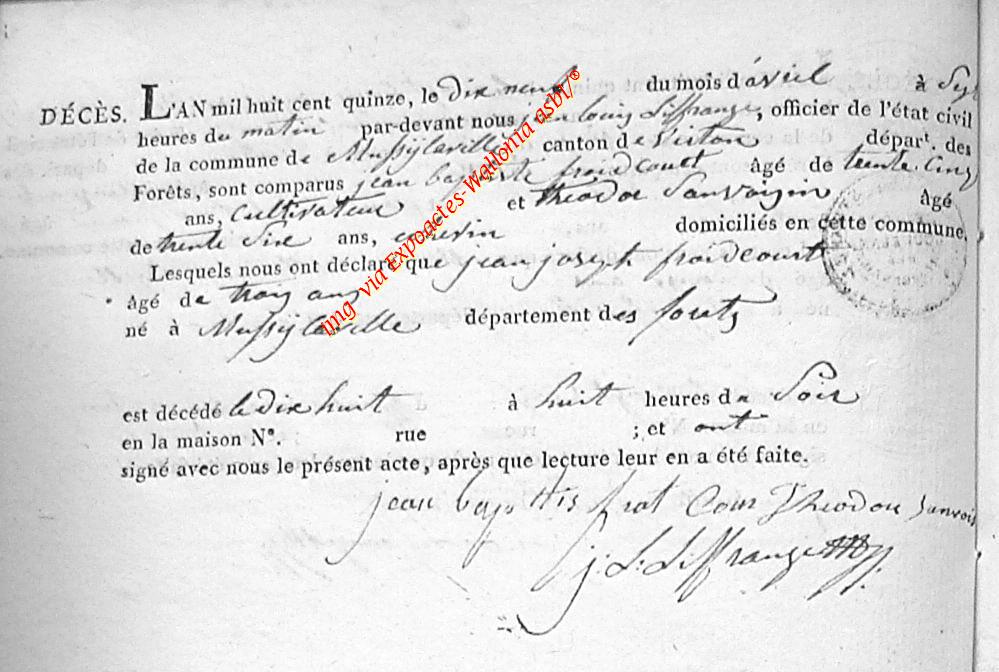 DÉCÈS. L'AN mil huit cent quinze, le dix neuf du mois d'avril à Sept
heures du matin par-devant nous jean louis Liffrange, officier de l'état civil
de la commune de Mussylaville canton de Virton départ. des
Forêts, sont comparus jean baptiste froidcourt âgé de trente Cinq
ans, Cultivateur et théodor Sanvoisin âgé
de trente Six ans, domiciliés en cette commune,
Lesquels nous ont déclaré que jean joseph froidcourt
âgé de troy ans
né à Mussylaville département des forets
est décédé le dix huit à huit heures du Soir
en la maison N°. rue ; et ont
signé avec nous le présent acte, après que lecture leur en a été faite.
jean baptis frot Cour Theodore Sanvois
j. L. Liffrange
img via Expoactes-Wallonia asbl/®